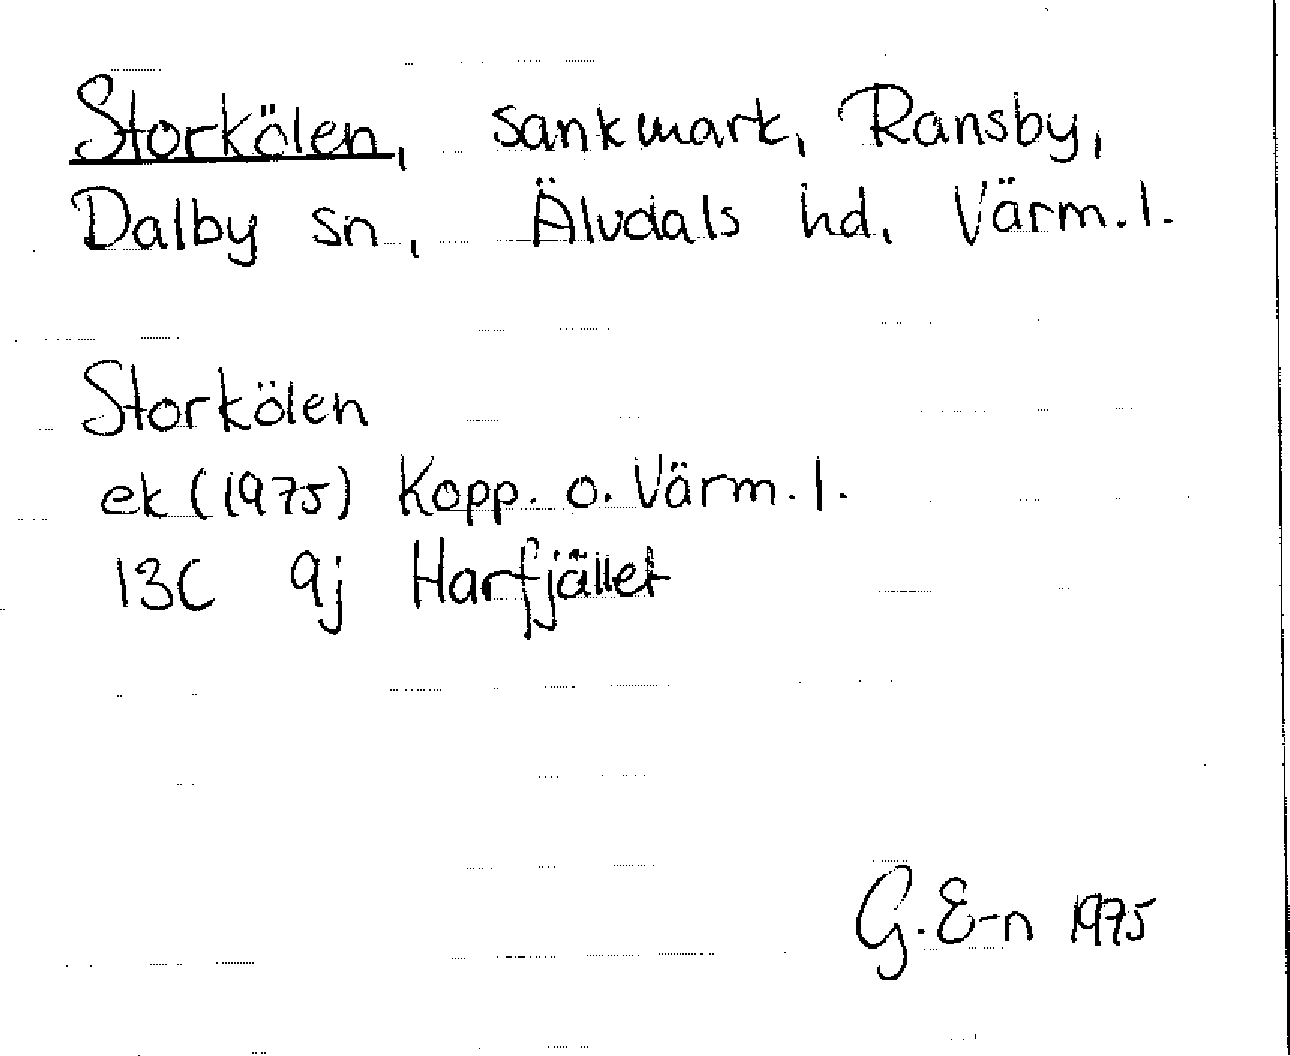 Storkölen, sankmark, Ransby,
Dalby sn, Älvdals hd, Värm. l.
Storkölen
ek (1975) Kopp. o. Värm. l.
13C 9j Harfjället
G. E-n 1975